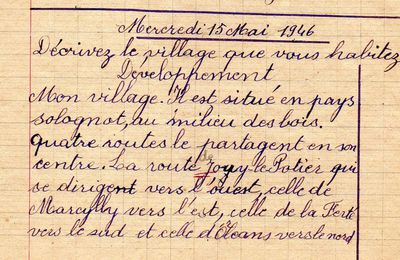 Mercredi 15 Mai 1946
Décrivez le village que vous habitez
Développement
Mon village. Il est situé en pays
solognot, au milieu des bois.
Quatre routes le partagent en son
centre. La route de Jouy-le-Potier qui
se dirigent vers l'ouest, celle de
Marcilly vers l'est, celle de la Ferté
vers le sud et celle d'Orléans vers le nord